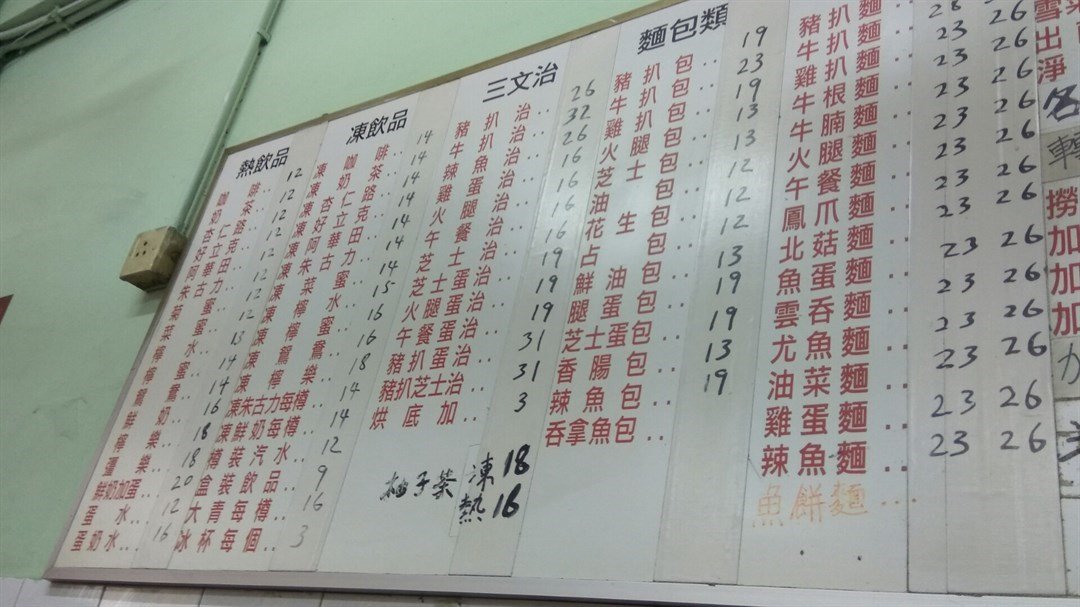 熱飲品
咖啡.. 12
奶茶 12
杏仁路 12
好立克 12
阿華田
朱古力 12
菜蜜 12
檸蜜
檸水.. 13
鴛鴦 14
鮮奶.. 16
檸樂.. 18
樂.. 18
鮮奶加蛋 20
蛋水.. 12
蛋奶水... 16
凍飲品
凍咖啡.. 14
凍奶茶.. 14
凍杏仁路.. 14
凍好立克.. 14
凍阿華田.. 14
凍朱古力.. 14
凍菜蜜.. 14
凍檸蜜.. 15
凍檸水.. 16
凍鴛鴦.. 16
凍檸樂.. 18
凍朱古力每樽 14
凍鮮奶每樽 14
樽裝汽水.. 12
盒裝飲品.. 9
大青每樽.. 16
冰杯每個.. 3
三文治
豬扒治.. 26
牛扒治.. 32
辣魚治.. 26
雞蛋治.. 16
火腿治.. 16
午餐治.. 16
芝士治.. 16
芝士蛋治.. 19
腿蛋治.. 19
午餐蛋治.. 19
豬扒蛋治.. 31
豬扒芝士治.. 31
烘底加.. 3
柚子茶 凍18
熱16
麵包類
豬扒包.. 19
牛扒包.. 23
雞扒包.. 19
火腿包.. 13
芝士包.. 13
油包.. 12
花生包.. 12
占包.. 12
鮮油包.. 13
腿蛋包.. 19
芝士蛋包.. 19
香腸包.. 13
辣魚包.. 19
吞拿魚包..
豬扒麵
牛扒麵 28 26
雞扒麵 23 26
牛根麵 23 26
牛腩麵 23 26
火腿麵 23 26
午餐麵 23 26
鳳爪麵 23 26
北菇麵
魚蛋麵 23 26
雲吞麵 23 26
尤魚麵 23 26
油菜麵 23 26
雞蛋麵 23 26
辣魚麵 23 26
魚餅麵..
雪菜
出
淨
各
轉
撈
加
加
加